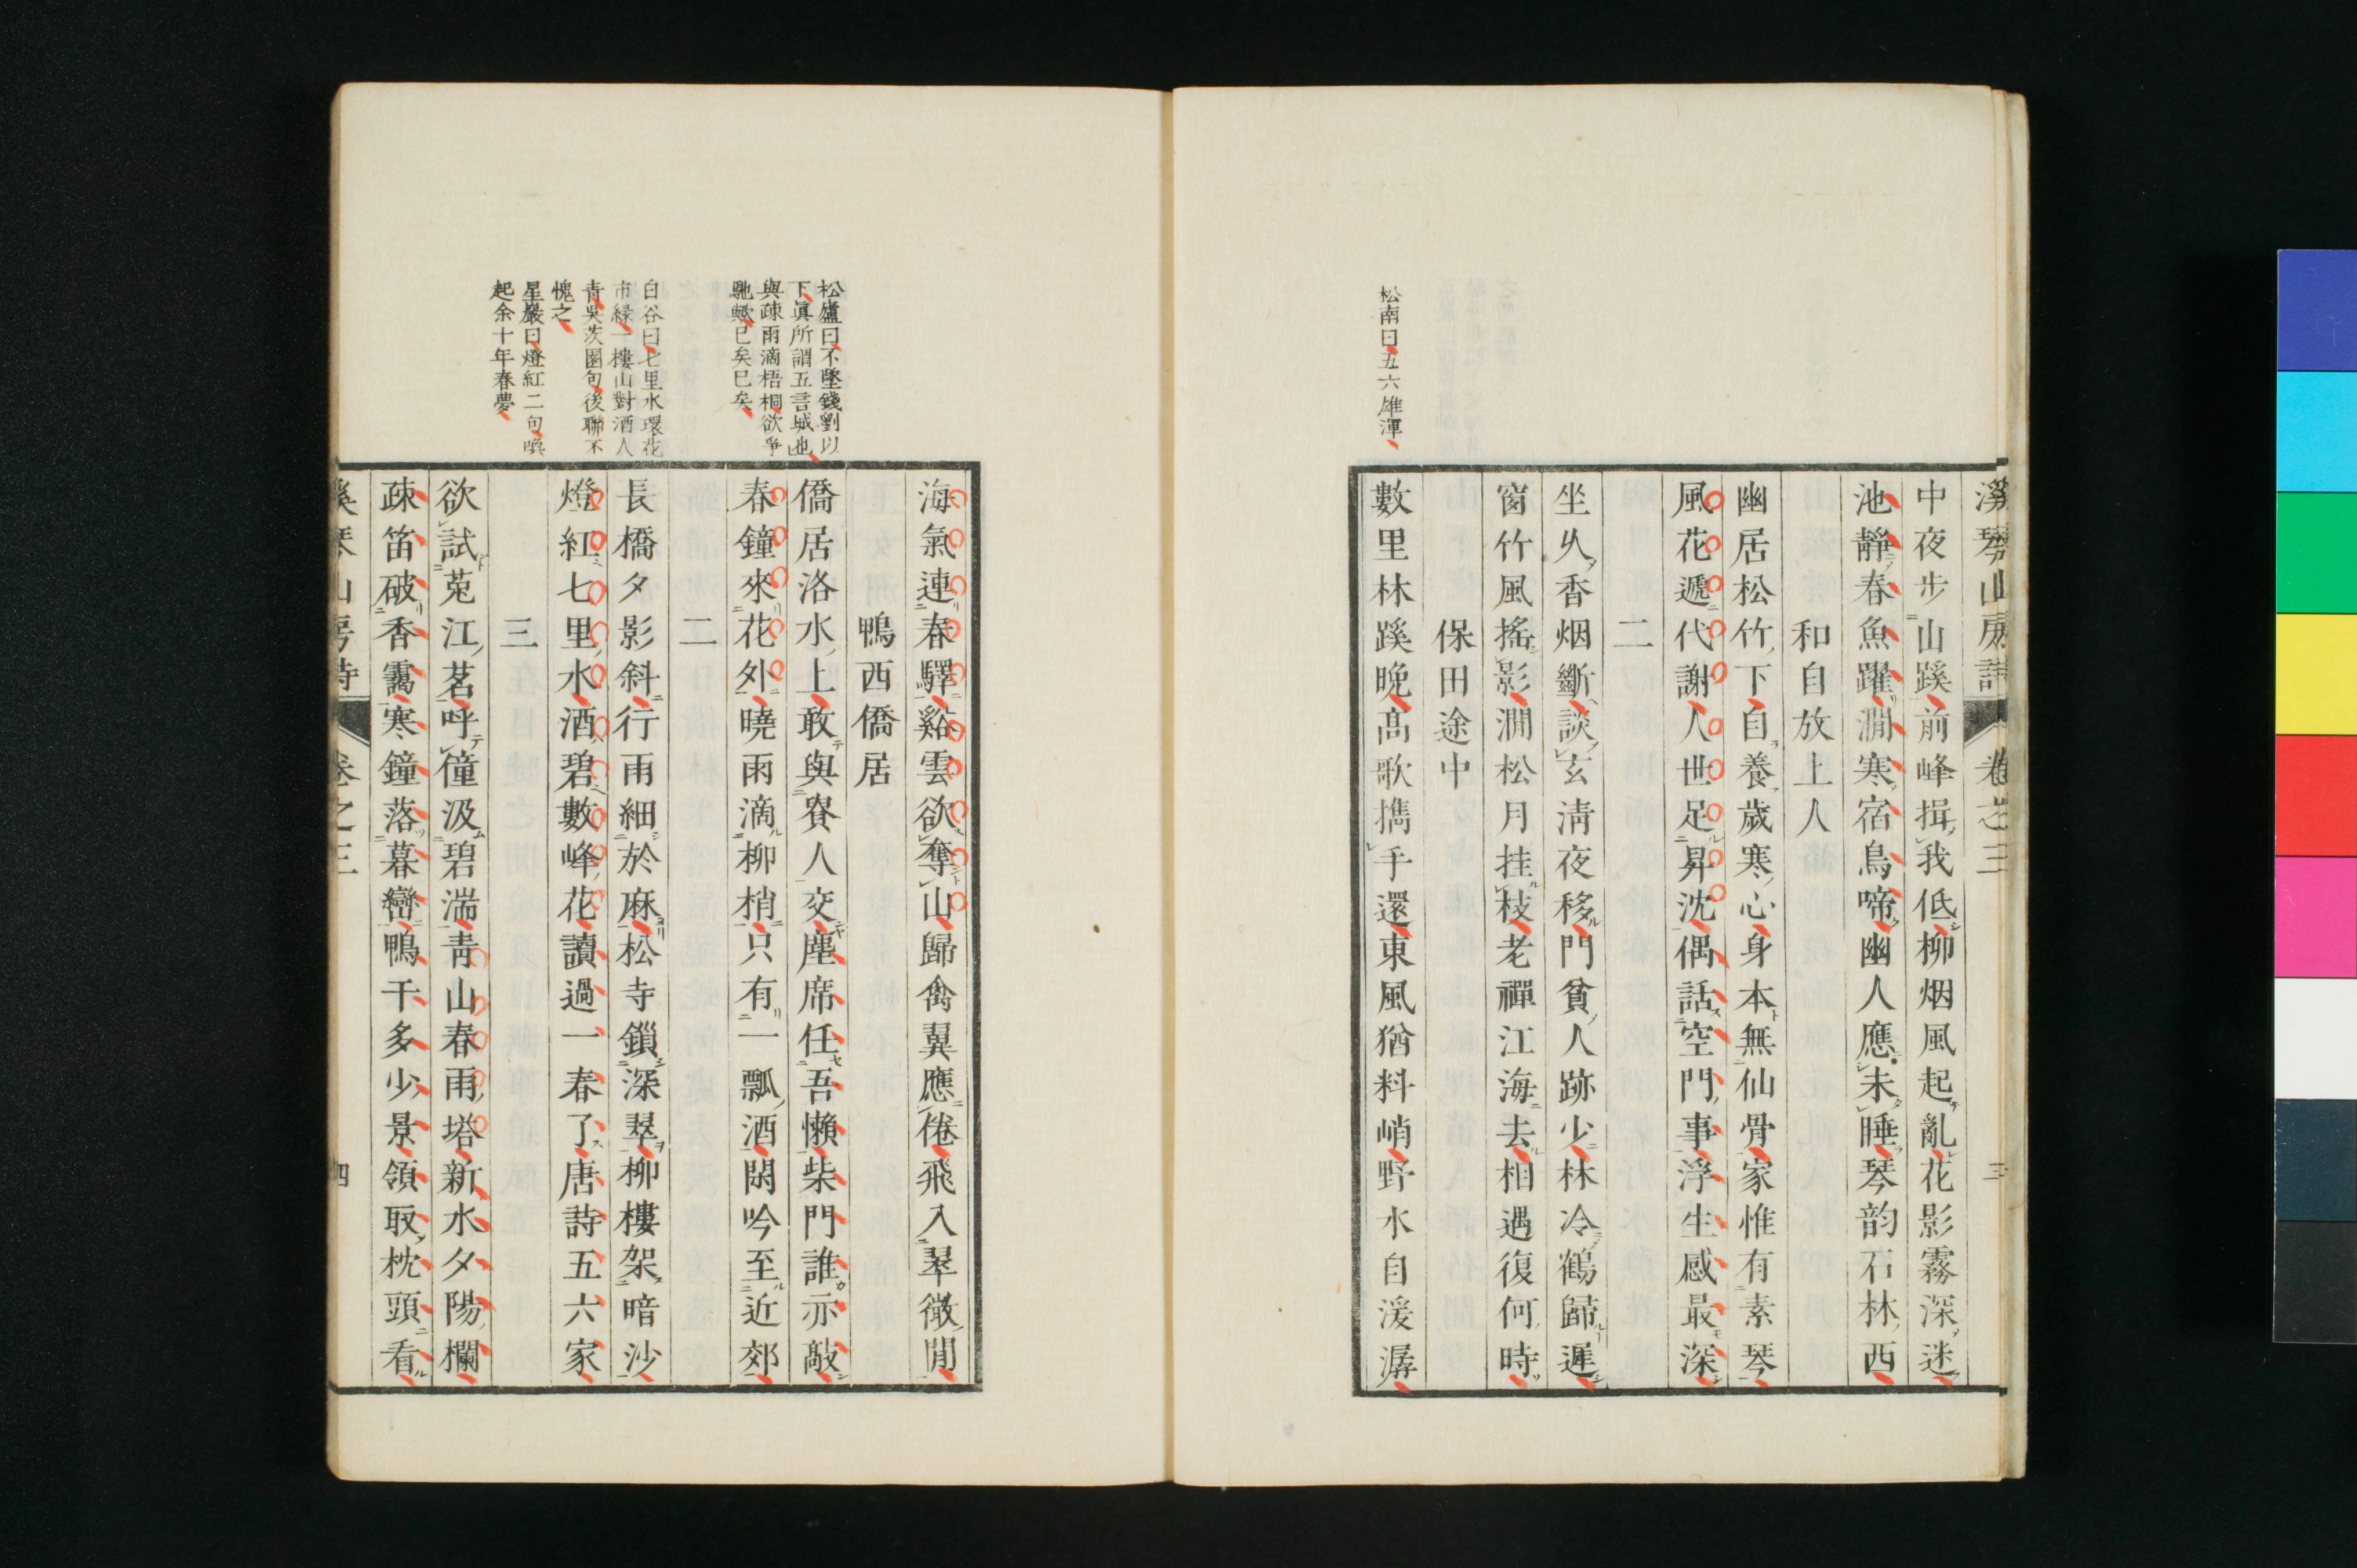 溪琴山房詩 卷之三 三
中夜步山蹊前峰揖我低柳烟風起亂花影霧深迷
池靜春魚躍澗寒宿鳥啼幽人應未睡琴韵石林西
和自放上人
幽居松竹下自養歲寒心身本無仙骨家惟有素琴
風花遞代謝人世足昇沈偶話空門事浮生感最深
二
坐久香烟斷談玄淸夜移門貧人跡少林冷鶴歸遲
窗竹風搖影澗松月挂枝老禪江海去相遇復何時
保田途中
松南曰五六雄渾
數里林蹊晩高歌擕手還東風猶料峭野水自湲潺
海氣連春驛谿雲欲奪山歸禽翼應倦飛入翠微閒
鴨西僑居
松廬曰不墜錢劉以
下眞所謂五言城也
與疎雨滴梧桐欲爭
馳蠍已矣已矣
僑居洛水上敢與賚人交塵席任吾懶柴門誰亦敲
春鐘來花外曉雨滴柳梢只有一瓢酒閑吟至近郊
二
白谷曰七里水環花
市緑一樓山對酒人
靑吳茨園句後聯不
愧之
星巖曰燈紅二句喚
起余十年春夢
長橋夕影斜行雨細於麻松寺鎖深翠柳樓架暗沙
燈紅七里水酒碧數峰花讀過一春了唐詩五六家
三
欲試莵江茗呼僮汲碧湍靑山春雨塔新水夕陽欄
疎笛破香靄寒鐘落暮巒鴨干多少景領取枕頭看
溪琴山房詩 卷之三 四